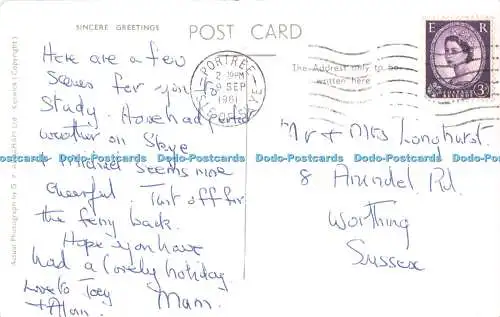 SINCERE GREETINGS
POST CARD
Here are a few
scenes for you to
study. Have had perfect
weather on Skye
& Michael seems more
cheerful. Just off for
the ferry back.
Hope you have
had a lovely holiday
Love to Joey
+ Alan. Mam.
PORTREE
2-PM
9 SEP
1961
ISLE OF SKYE
The Address only to be
written here
E R
POSTAGE REVENUE
3D
Mr & Mrs Longhurst.
8 Arundel Rd.
Worthing
Sussex
Dodo-Postcards Dodo-Postcards Dodo-Postcards Dodo-Postcards Dodo-Postcards
Actual Photograph by G. P. Abraham Ltd Keswick (Copyright)